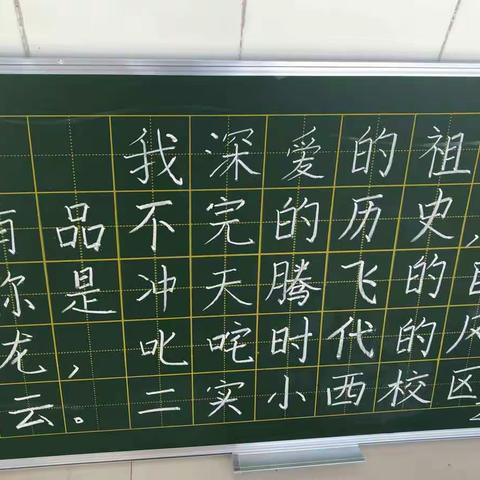 我深爱的祖
有品不完的历史，
你是冲天腾飞的
龙，叱咤时代的风
云。二实小西校区